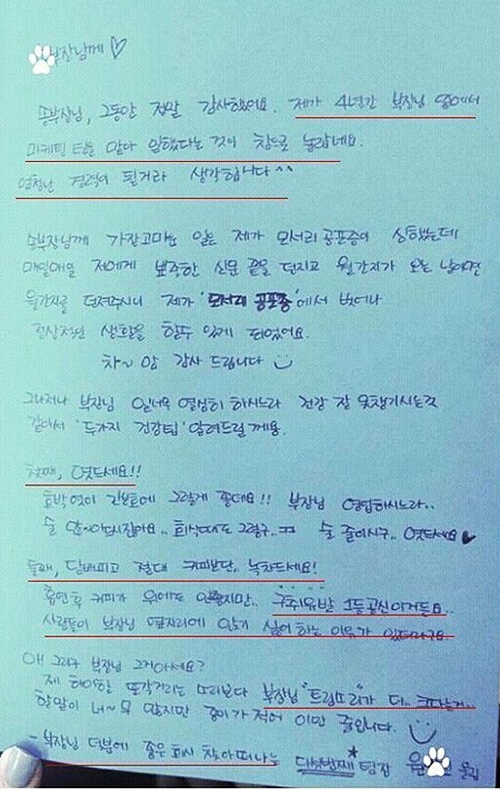 부장님께 ♡
송부장님, 그동안 정말 감사했어요. 제가 4년간 부장님 옆에서
마케팅 팀을 맡아 일했다는 것이 참으로 놀랍네요.
엄청난 경력이 될거라 생각합니다 ^^
송부장님께 가장고마운 일은 제가 모서리 공포증이 심했는데
매일매일 저에게 뾰족한 신문 끝을 던지고 월간지가 오는 날이면
월간지를 던져주시니 제가 '모서리 공포증'에서 벗어나
정상적인 생활을 할수 있게 되었어요.
차~암 감사 드립니다
그나저나 부장님 일너무 열심히 하시느라 건강 잘 못챙기시는것
같아서 '두가지 건강팁' 알려드릴께용.
첫째, 엿드세요!!
호박엿이 간에 그렇게 좋대요!! 부장님 영업하시느라..
술 많~이 드시잖아요.. 회식때도 그렇구.. ㅠㅠ 술 줄이시구.. 엿드세요 ♥
둘째, 담배피고 절대 커피보단.. 녹차드세요!
흡연후 커피가 위에도 안좋지만.. 구취유발 1등공신이거든요..
사람들이 부장님 옆자리에 앉기 싫어 하는 이유가 있더라구요.
아 그리구 부장님 그거아세요?
제 하이힐 또각거리는 소리보다 부장님 "트림소리"가 더.. 크다는거..
할말이 너~무 많지만 종이가 적어 이만 줄입니다.
- 부장님 덕분에 좋은 회사 찾아 떠나는 다섯번째 팀장 윤 올림